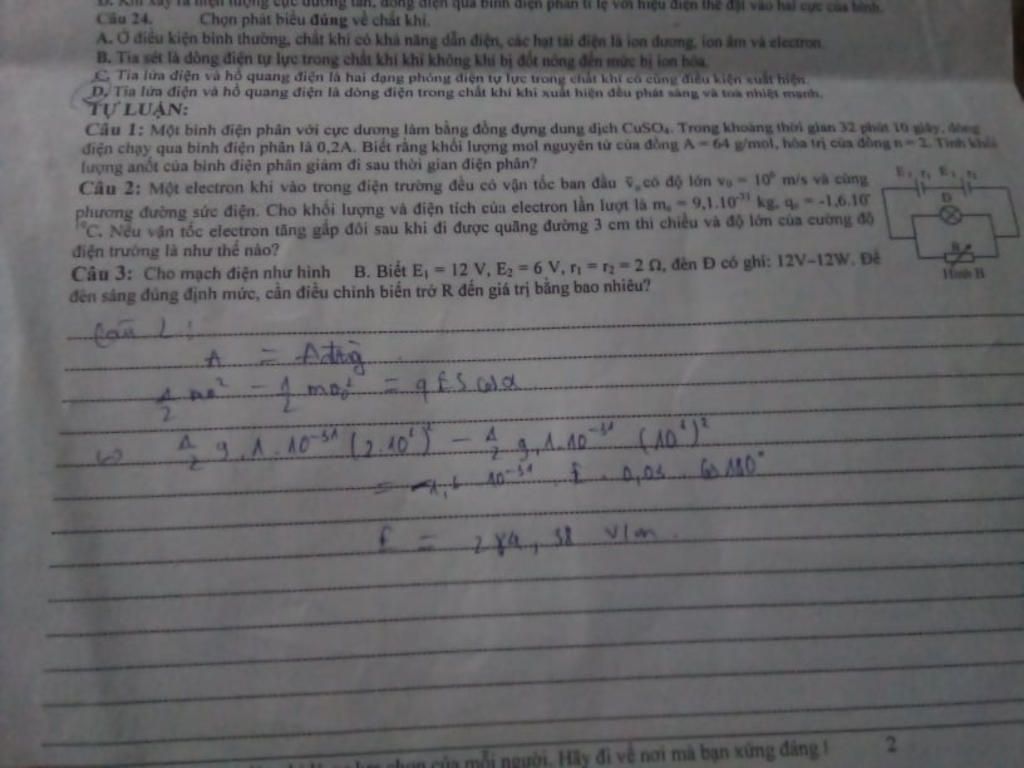 D. Khi xảy ra hiện tượng cực dương tan, dòng điện qua bình điện phân tỉ lệ với hiệu điện thế đặt vào hai cực của bình.
Câu 24. Chọn phát biểu đúng về chất khí.
A. Ở điều kiện bình thường, chất khí có khả năng dẫn điện, các hạt tải điện là ion dương, ion âm và electron.
B. Tia sét là dòng điện tự lực trong chất khí khi không khí bị đốt nóng đến mức bị ion hóa.
C. Tia lửa điện và hồ quang điện là hai dạng phóng điện tự lực trong chất khí có cùng điều kiện xuất hiện.
D. Tia lửa điện và hồ quang điện là dòng điện trong chất khí khi xuất hiện đều phát sáng và toả nhiệt mạnh.
TỰ LUẬN:
Câu 1: Một bình điện phân với cực dương làm bằng đồng đựng dung dịch CuSO₄. Trong khoảng thời gian 32 phút 10 giây, dòng
điện chạy qua bình điện phân là 0,2A. Biết rằng khối lượng mol nguyên tử của đồng A = 64 g/mol, hóa trị của đồng n = 2. Tính khối
lượng anốt của bình điện phân giảm đi sau thời gian điện phân?
Câu 2: Một electron khi vào trong điện trường đều có vận tốc ban đầu v⃗₀ có độ lớn v₀ = 10⁶ m/s và cùng
phương đường sức điện. Cho khối lượng và điện tích của electron lần lượt là mₑ = 9,1.10⁻³¹ kg, qₑ = -1,6.10⁻
¹⁹C. Nếu vận tốc electron tăng gấp đôi sau khi đi được quãng đường 3 cm thì chiều và độ lớn của cường độ
điện trường là như thế nào?
E₁, r₁ E₂, r₂
Đ
R
Hình B
Câu 3: Cho mạch điện như hình B. Biết E₁ = 12 V, E₂ = 6 V, r₁ = r₂ = 2 Ω, đèn Đ có ghi: 12V–12W. Để
đèn sáng đúng định mức, cần điều chỉnh biến trở R đến giá trị bằng bao nhiêu?
Câu 2:
A = Ađtg
1/2 mv² - 1/2 mv₀² = q E S cosα
1/2 9,1.10⁻³¹ (2.10⁶)² - 1/2 9,1.10⁻³¹ (10⁶)²
= -1,6 10⁻³¹ . E . 0,03 . Cos 180°
E = 284,38 V/m.
của mỗi người. Hãy đi về nơi mà bạn xứng đáng !
2